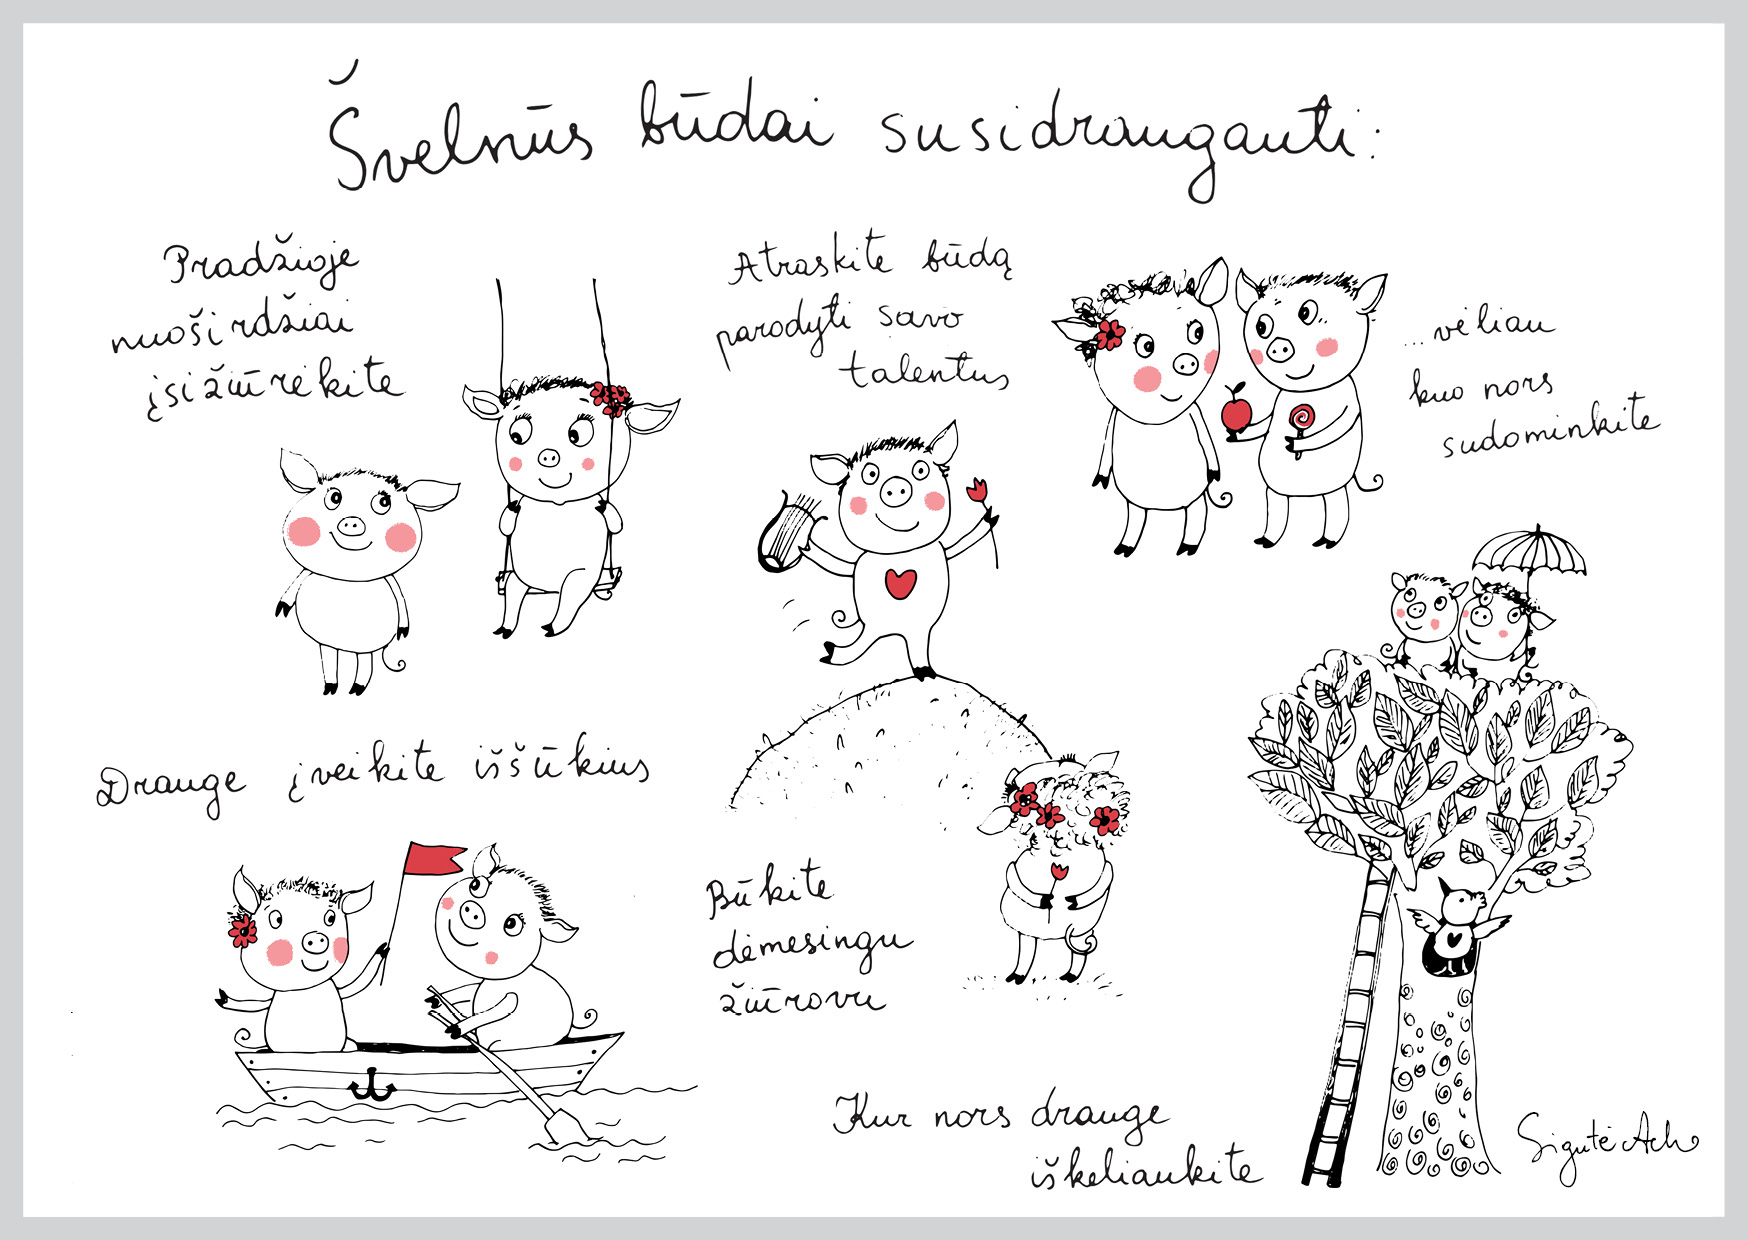 Švelnūs būdai susidrauganti:
Pradžioje
nuoširdžiai
įsižiūrėkite
Atraskite būdą
parodyti savo
talentus
...vėliau
kuo nors
sudominkite
Drauge įveikite iššūkius
Būkite
dėmesingu
žiūrovu
Kur nors drauge
iškeliaukite
Sigutė Ach